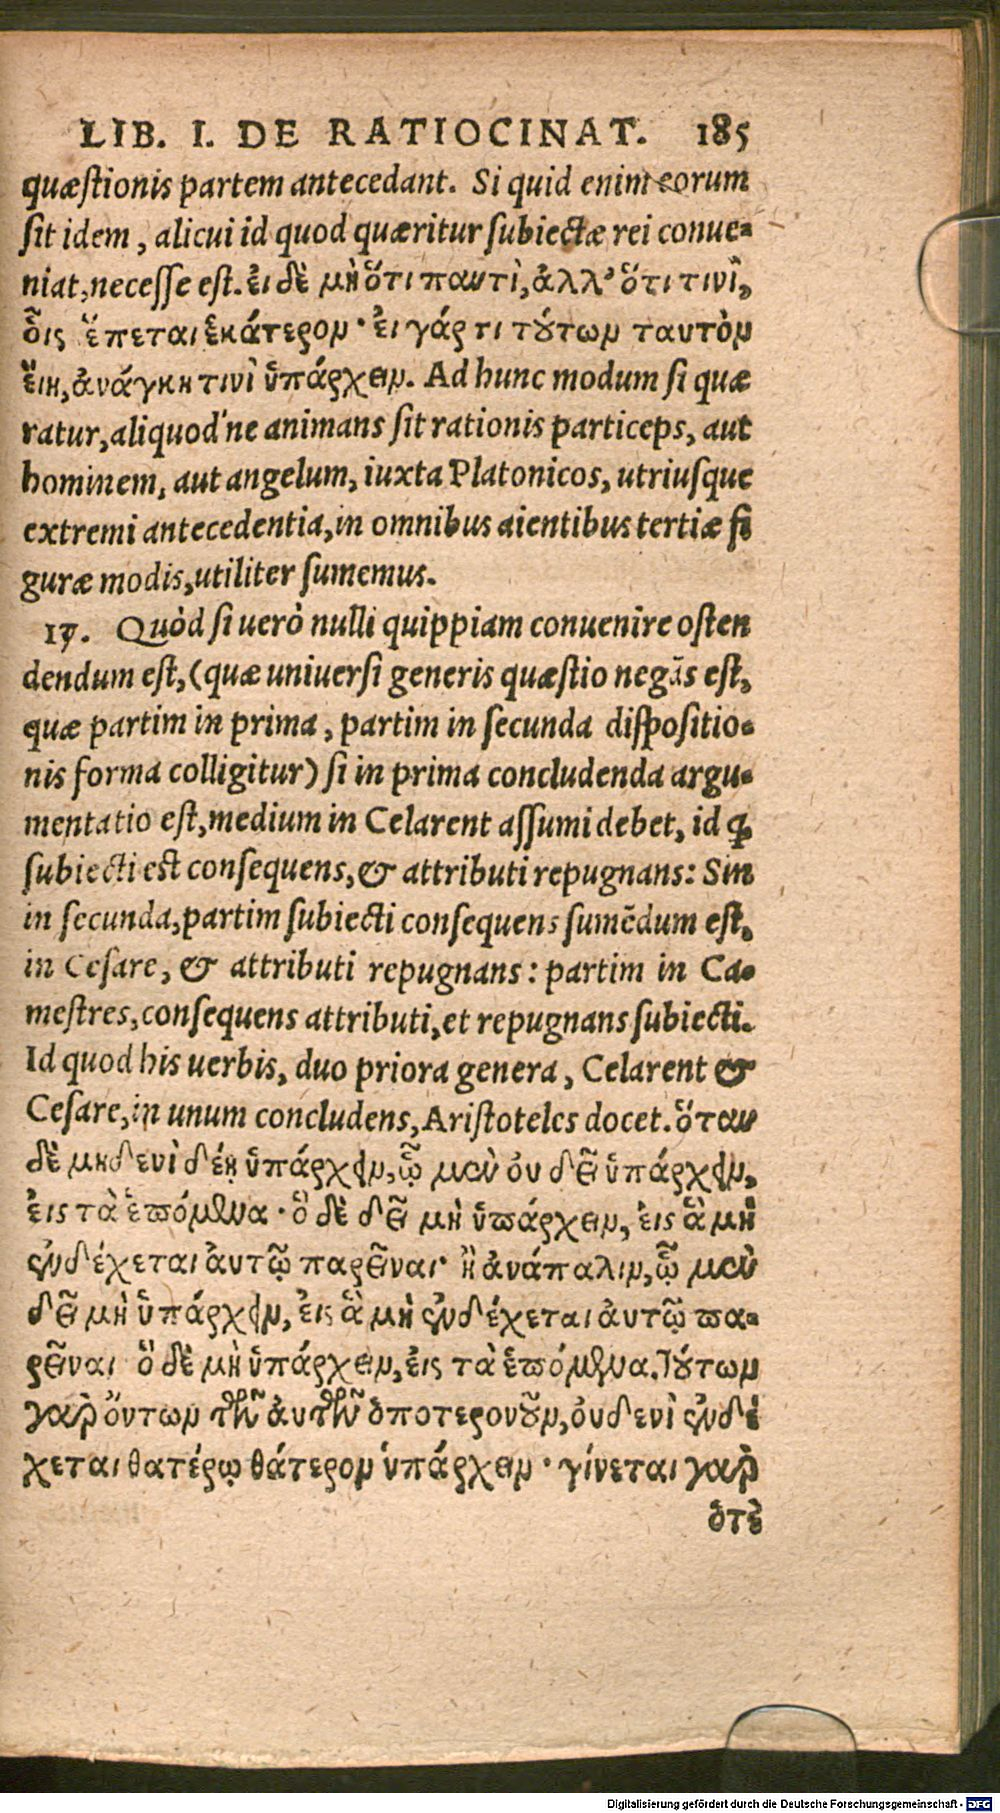 LIB. I. DE RATIOCINAT. 185
quæstionis partem antecedant. Si quid enim eorum
sit idem, alicui id quod quæritur subiectæ rei conue-
niat, necesse est. ἐι δὲ μὴ ὅτι παντὶ, ἀλλ' ὅτι τινῒ,
οἷς ἕπεται ἑκάτερον· ἐι γάρ τι τούτων ταυτὸν
ἔιη, ἀνάγκη τινὶ ὑπάρχειν. Ad hunc modum si quæ
ratur, aliquod'ne animans sit rationis particeps, aut
hominem, aut angelum, iuxta Platonicos, utriusque
extremi antecedentia, in omnibus aientibus tertiæ fi
guræ modis, utiliter sumemus.
17. Quòd si uerò nulli quippiam conuenire osten
dendum est, (quæ uniuersi generis quæstio negãs est,
quæ partim in prima, partim in secunda dispositio-
nis forma colligitur) si in prima concludenda argu-
mentatio est, medium in Celarent assumi debet, id ꝙ
subiecti est consequens, & attributi repugnans: Sin
in secunda, partim subiecti consequens sumẽdum est,
in Cesare, & attributi repugnans: partim in Ca-
mestres, consequens attributi, et repugnans subiecti.
Id quod his uerbis, duo priora genera, Celarent &
Cesare, in unum concludens, Aristoteles docet. ὅταν
δὲ μηδενὶ δέῃ ὑπάρχειν, ᾧ μὲν ὀυ δεῖ ὑπάρχειν,
ἐις τὰ ἑπόμενα· ὃ δὲ δεῖ μὴ ὑπάρχειν, ἐις ἃ μὴ
ἐνδέχεται ἀυτῷ παρεῖναι· ἢ ἀνάπαλιν, ᾧ μὲν
δεῖ μὴ ὑπάρχειν, ἐις ἃ μὴ ἐνδέχεται ἀυτῷ πα-
ρεῖναι ὃ δὲ μὴ ὑπάρχειν, ἐις τὰ ἑπόμενα. Τούτων
γὰρ ὄντων τῶν ἀυτῶν ὁποτερονοῦν, ὀυδενὶ ἐνδέ
χεται θατέρῳ θάτερον ὑπάρχειν· γίνεται γὰρ
ὁτὲ